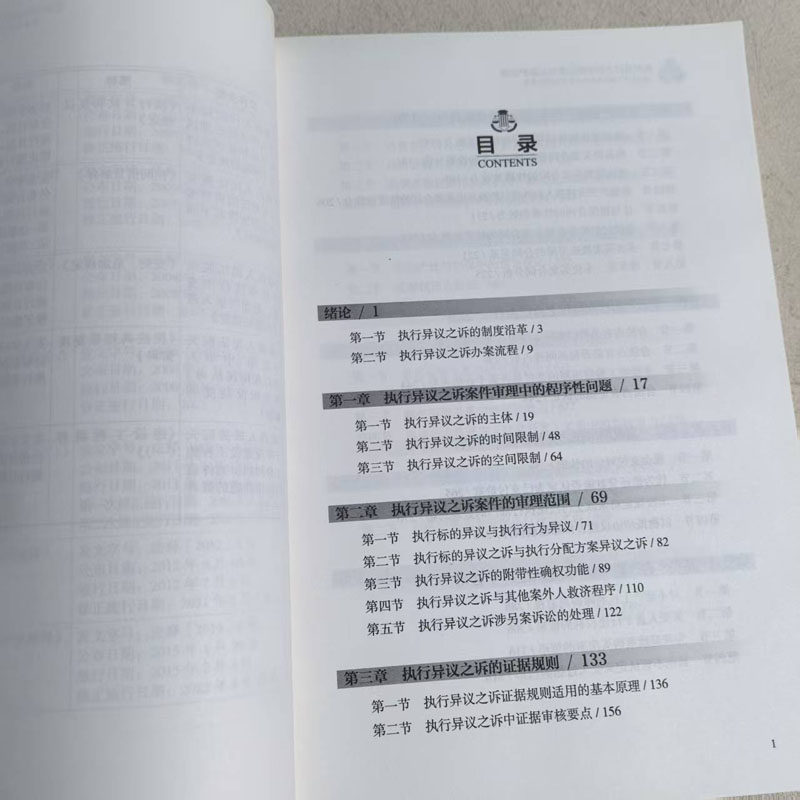 目 录
CONTENTS
绪论 / 1
第一节 执行异议之诉的制度沿革 / 3
第二节 执行异议之诉办案流程 / 9
第一章 执行异议之诉案件审理中的程序性问题 / 17
第一节 执行异议之诉的主体 / 19
第二节 执行异议之诉的时间限制 / 48
第三节 执行异议之诉的空间限制 / 64
第二章 执行异议之诉案件的审理范围 / 69
第一节 执行标的异议与执行行为异议 / 71
第二节 执行标的异议之诉与执行分配方案异议之诉 / 82
第三节 执行异议之诉的附带性确权功能 / 89
第四节 执行异议之诉与其他案外人救济程序 / 110
第五节 执行异议之诉涉另案诉讼的处理 / 122
第三章 执行异议之诉的证据规则 / 133
第一节 执行异议之诉证据规则适用的基本原理 / 136
第二节 执行异议之诉中证据审核要点 / 156
I